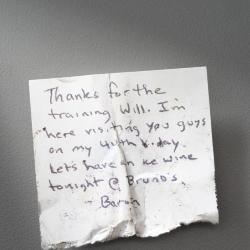 Thanks for the
training Will. I'm
here visiting you guys
on my 40th b.day.
Let's have an ice wine
tonight @ Bruno's
- Baron